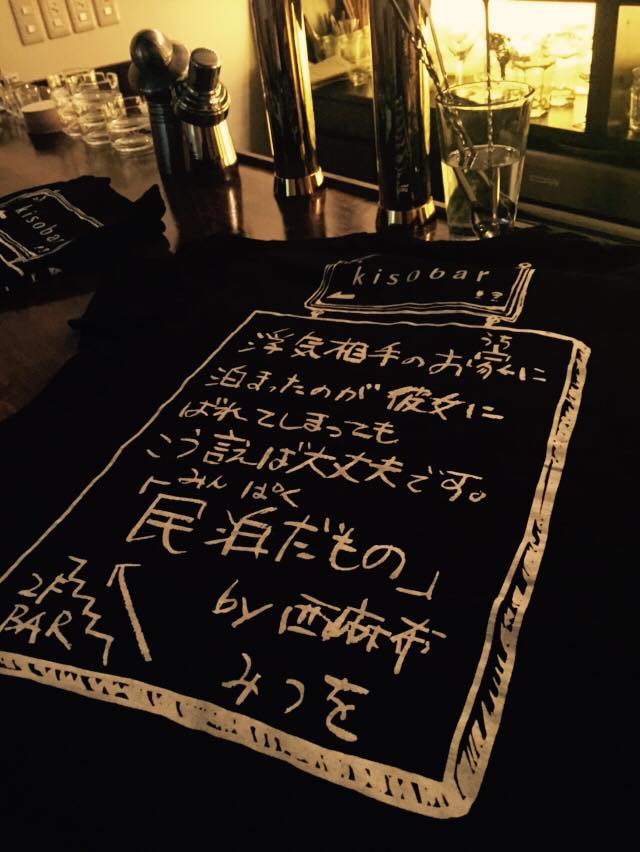 kisobar
kisobar
!?
浮気相手のお家に
泊まったのが彼女に
ばれてしまっても
こう言えば大丈夫です。
みんぱく
「民泊だもの」
by 西麻布
みつを
2F
BAR